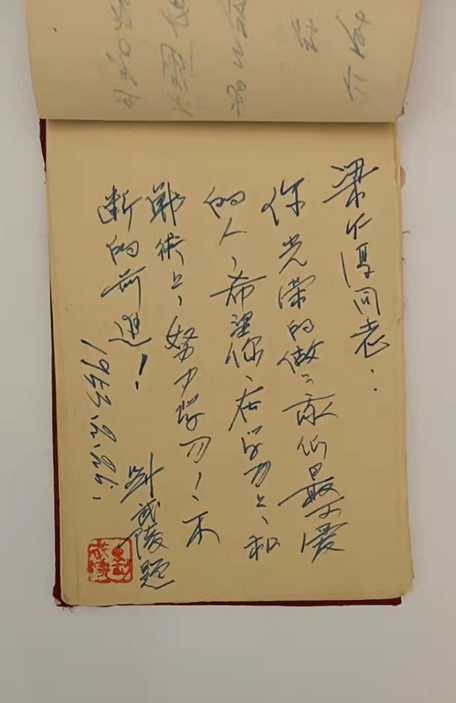 梁仁厚同志：
你光荣的做了我们最可爱
的人，希望你，在学习上，和
战术上，努力学习！不
断的前进！
1953.2.26.
刘武陵题